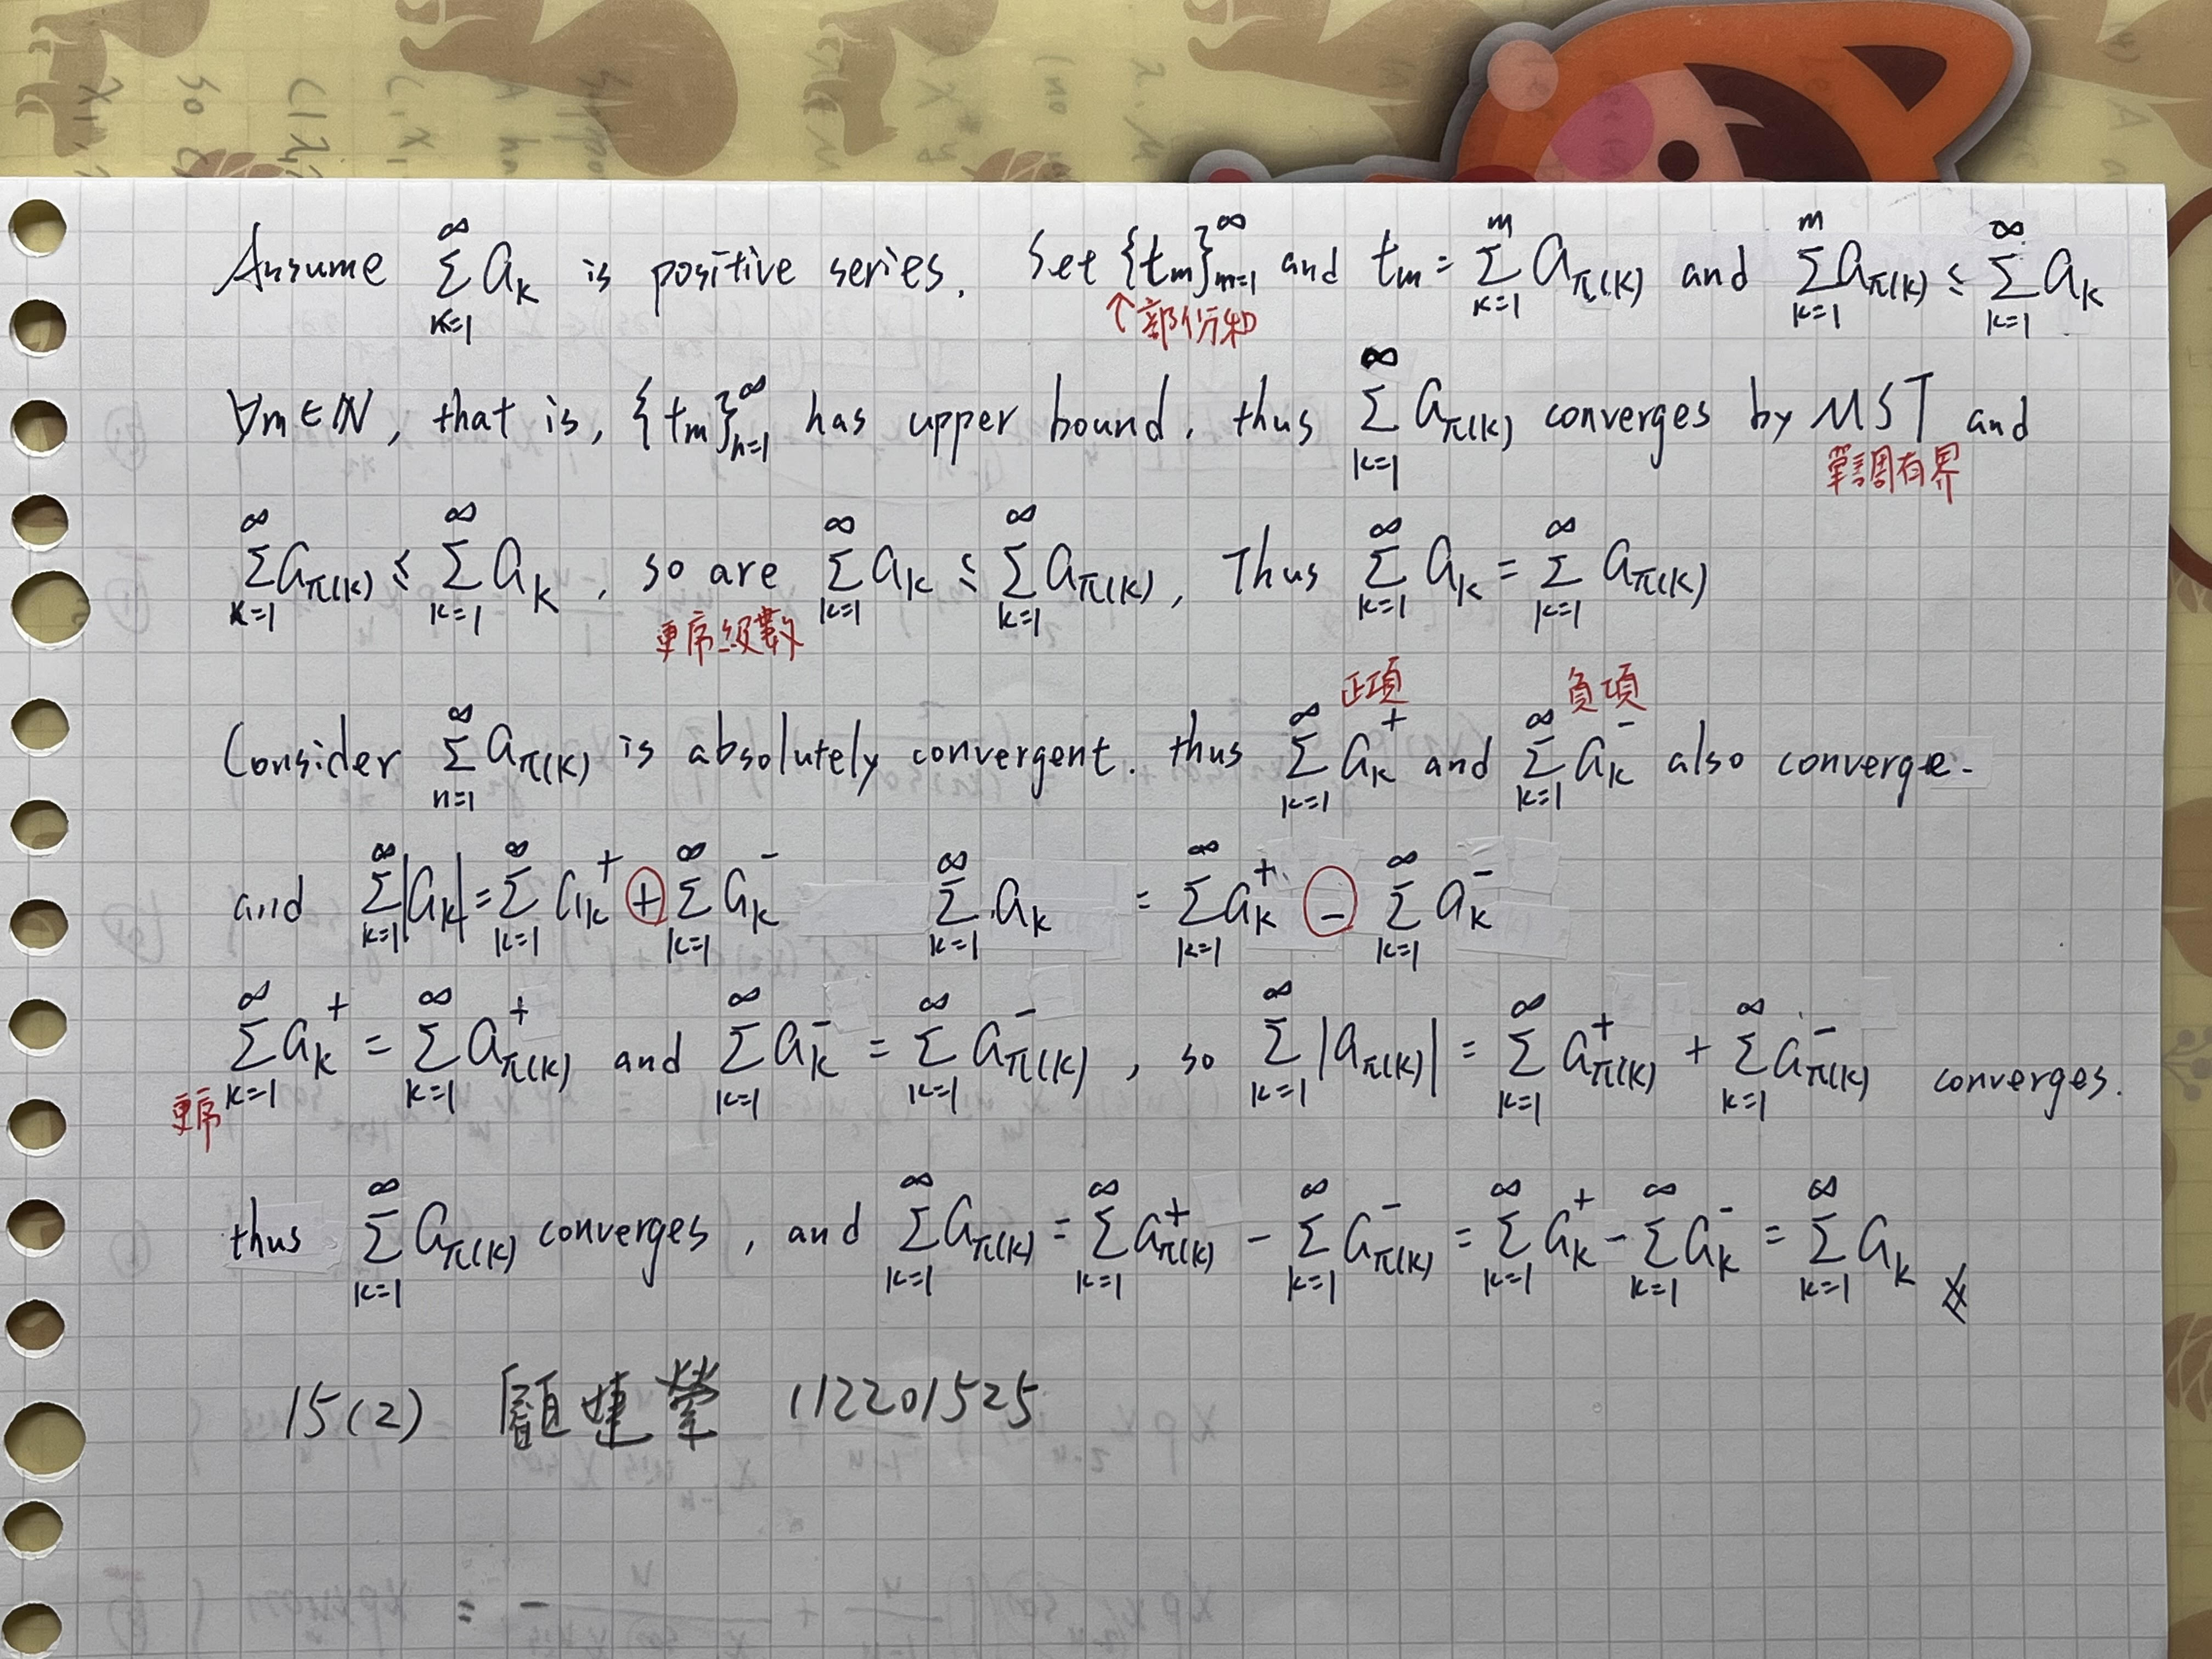 Assume ∞Σk=1 aₖ is positive series. Set {tₘ}∞m=1 and tₘ = mΣk=1 a_π(k) and mΣk=1 a_π(k) ≤ ∞Σk=1 aₖ
↑部份和
∀m∈ℕ, that is, {tₘ}∞n=1 has upper bound, thus ∞Σk=1 a_π(k) converges by MST and
單調有界
∞Σk=1 a_π(k) ≤ ∞Σk=1 aₖ, so are ∞Σk=1 aₖ ≤ ∞Σk=1 a_π(k), Thus ∞Σk=1 aₖ = ∞Σk=1 a_π(k)
更序級數
正項 負項
Consider ∞Σn=1 a_π(k) is absolutely convergent. thus ∞Σk=1 aₖ⁺ and ∞Σk=1 aₖ⁻ also converge.
and ∞Σk=1 |aₖ| = ∞Σk=1 aₖ⁺ + ∞Σk=1 aₖ⁻ ∞Σk=1 aₖ = ∞Σk=1 aₖ⁺ - ∞Σk=1 aₖ⁻
∞Σk=1 aₖ⁺ = ∞Σk=1 a_π(k)⁺ and ∞Σk=1 aₖ⁻ = ∞Σk=1 a_π(k)⁻, so ∞Σk=1 |a_π(k)| = ∞Σk=1 a_π(k)⁺ + ∞Σk=1 a_π(k)⁻ converges.
更序
thus ∞Σk=1 a_π(k) converges, and ∞Σk=1 a_π(k) = ∞Σk=1 a_π(k)⁺ - ∞Σk=1 a_π(k)⁻ = ∞Σk=1 aₖ⁺ - ∞Σk=1 aₖ⁻ = ∞Σk=1 aₖ
15(2) 112201525